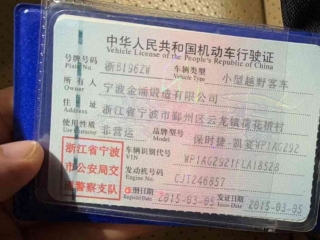 中华人民共和国机动车行驶证
Vehicle License of the People's Republic of China
号牌号码 浙B196ZW 车辆类型 小型越野客车
Plate No. Vehicle Type
所有人 宁波金涌锻造有限公司
Owner
住址 浙江省宁波市鄞州区云龙镇荷花桥村
使用性质 非营运 品牌型号 保时捷-凯宴WP1AG292
浙江省宁波 车辆识别代号 WP1AG2921FLA18528
VIN
市公安局交 发动机号码 CJT246857
Engine No.
通警察支队 注册日期 2015-03-05 发证日期 2015-03-05
Register Date